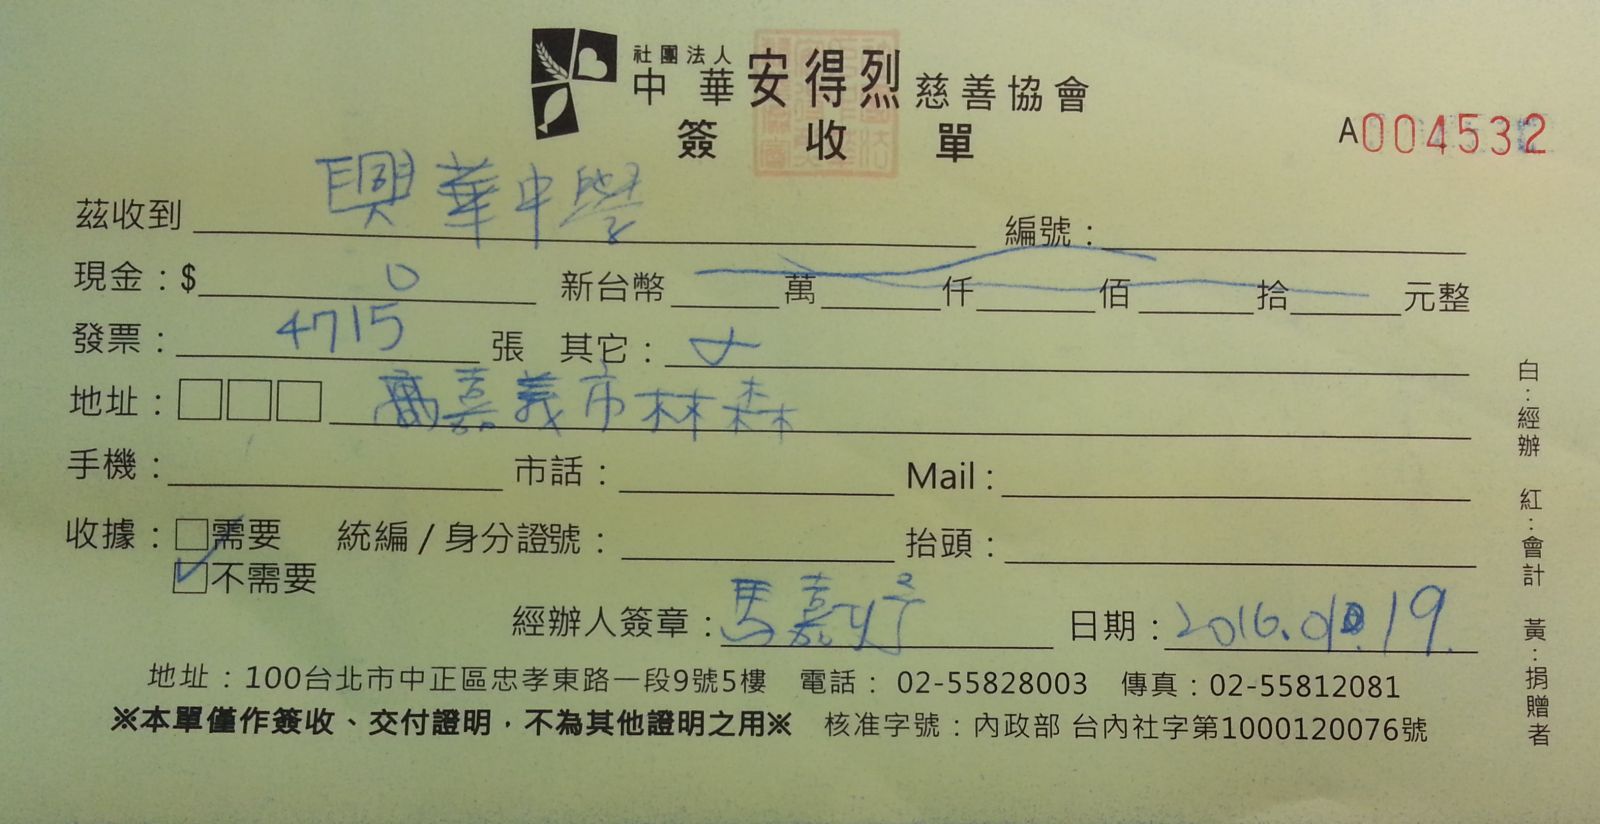 社團法人
中華安得烈慈善協會
簽收單
A004532
茲收到 興華中學 編號：
現金：$ 0 新台幣 萬 仟 佰 拾 元整
發票： 4715 張 其它：
地址： 嘉義市林森
手機： 市話： Mail：
收據： 需要 統編 / 身分證號： 抬頭：
✓不需要
經辦人簽章： 馬嘉 日期： 2016. 19.
地址：100台北市中正區忠孝東路一段9號5樓 電話：02-55828003 傳真：02-55812081
※本單僅作簽收、交付證明，不為其他證明之用※ 核准字號：內政部 台內社字第1000120076號
白：經辦 紅：會計 黃：捐贈者